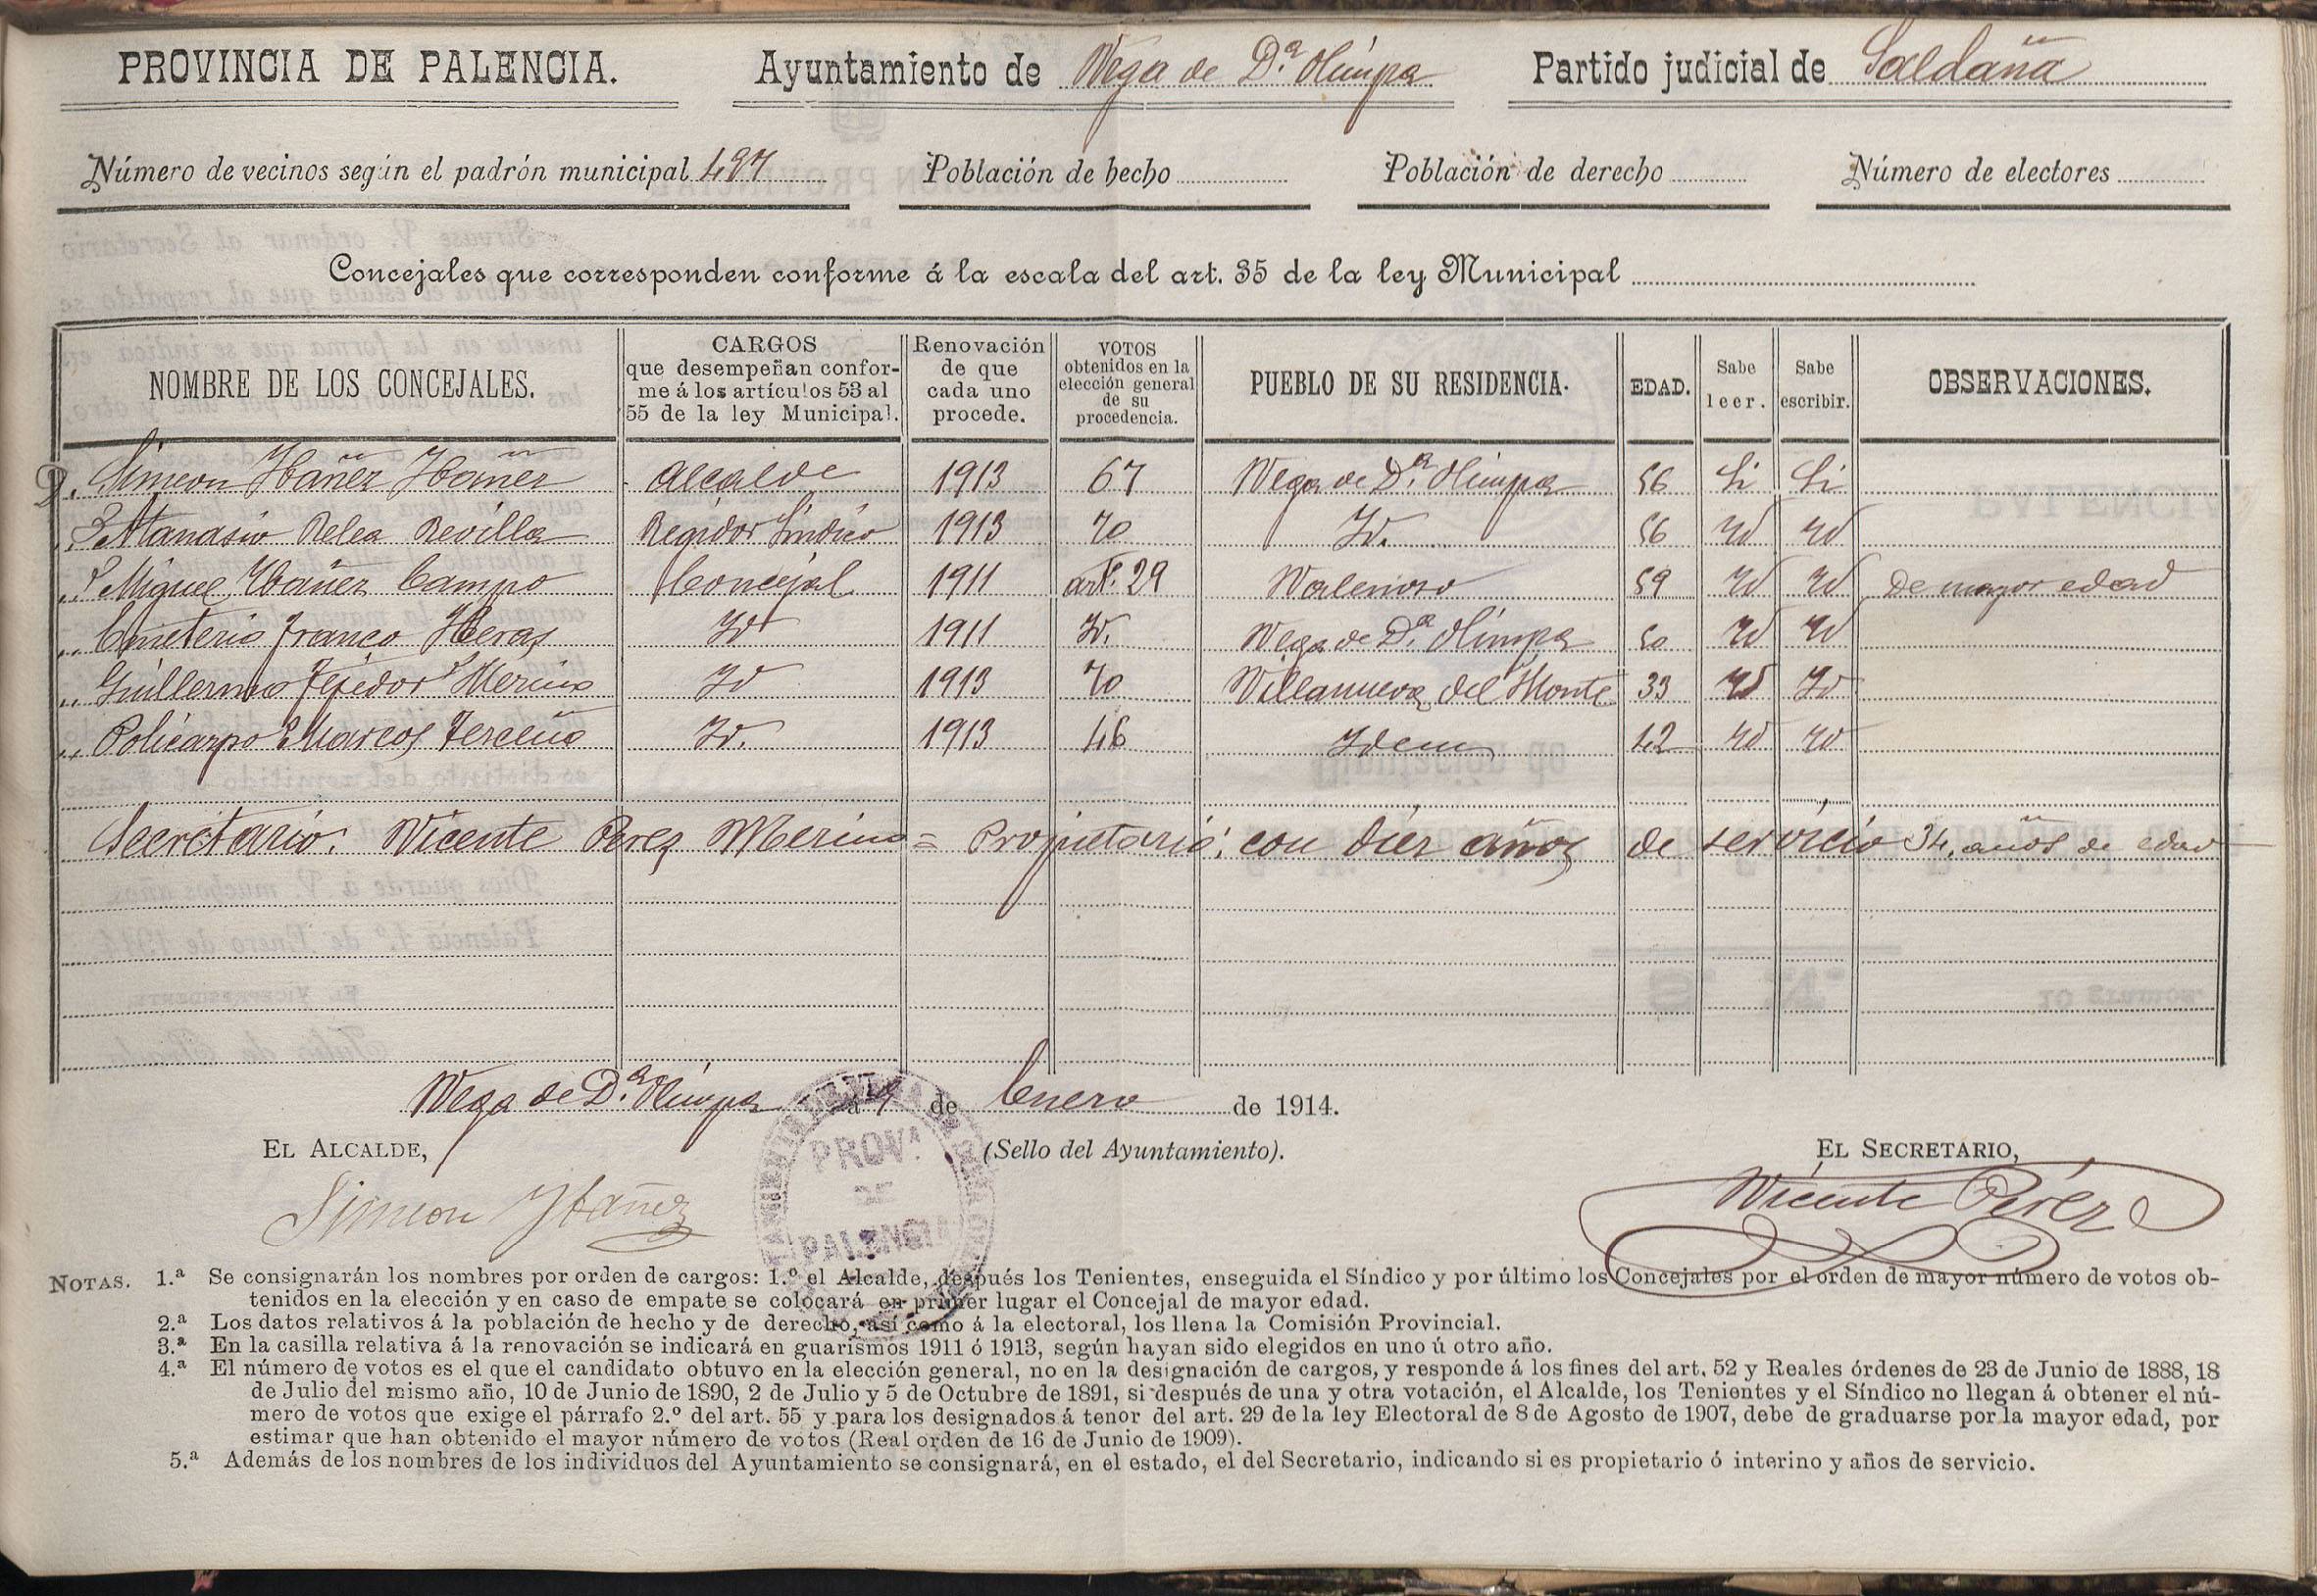 PROVINCIA DE PALENCIA. Ayuntamiento de Vega de D.ª Olimpa Partido judicial de Saldaña
Número de vecinos según el padrón municipal 497 Población de hecho Población de derecho Número de electores
Concejales que corresponden conforme á la escala del art. 35 de la ley Municipal
NOMBRE DE LOS CONCEJALES. CARGOS que desempeñan conforme á los artículos 53 al 55 de la ley Municipal. Renovación de que cada uno procede. VOTOS obtenidos en la elección general de su procedencia. PUEBLO DE SU RESIDENCIA. EDAD. Sabe leer. Sabe escribir. OBSERVACIONES.
D. Simeon Ibáñez Ibáñez Alcalde 1913 67 Vega de D.ª Olimpa 56 Si Si
" Atanasio Relea Revilla Regidor Sindico 1913 70 Id. 56 id id
" Miguel Ibáñez Campo Concejal 1911 art.º 29 Valenoso 59 id id De mayor edad
" Emeterio Franco Heras Id 1911 Id. Vega de D.ª Olimpa 50 id id
" Guillermo Tejedor Merino Id 1913 70 Villanueva del Monte 33 id id
" Policarpo Marcos Terceño Id. 1913 46 Idem 42 id id
Secretario: Vicente Perez Merino = Propietario; con diez años de servicio 34, años de edad
Vega de D.ª Olimpa á 9 de Enero de 1914.
EL ALCALDE, (Sello del Ayuntamiento). EL SECRETARIO,
Simeon Ybáñez Vicente Pérez
PROV.ª
DE
PALENCIA
NOTAS. 1.ª Se consignarán los nombres por orden de cargos: 1.º el Alcalde, después los Tenientes, enseguida el Síndico y por último los Concejales por el orden de mayor número de votos ob-
tenidos en la elección y en caso de empate se colocará en primer lugar el Concejal de mayor edad.
2.ª Los datos relativos á la población de hecho y de derecho, así como á la electoral, los llena la Comisión Provincial.
3.ª En la casilla relativa á la renovación se indicará en guarismos 1911 ó 1913, según hayan sido elegidos en uno ú otro año.
4.ª El número de votos es el que el candidato obtuvo en la elección general, no en la designación de cargos, y responde á los fines del art. 52 y Reales órdenes de 23 de Junio de 1888, 18
de Julio del mismo año, 10 de Junio de 1890, 2 de Julio y 5 de Octubre de 1891, si después de una y otra votación, el Alcalde, los Tenientes y el Síndico no llegan á obtener el nú-
mero de votos que exige el párrafo 2.º del art. 55 y para los designados á tenor del art. 29 de la ley Electoral de 8 de Agosto de 1907, debe de graduarse por la mayor edad, por
estimar que han obtenido el mayor número de votos (Real orden de 16 de Junio de 1909).
5.ª Además de los nombres de los individuos del Ayuntamiento se consignará, en el estado, el del Secretario, indicando si es propietario ó interino y años de servicio.